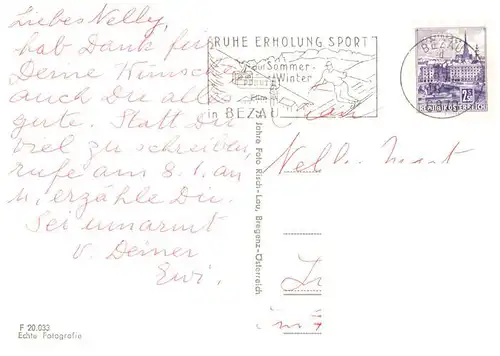 Liebes Nelly,
hab Dank für
Deine Wünsche
auch Du alles
gute. Statt Dir
viel zu schreiben,
rufe am 8.1. an
u. erzähle Dir.
Sei umarmt
v. Deiner
Ewi.
F 20.033
Echte Fotografie
RUHE ERHOLUNG SPORT
Sommer-
Winter
in BEZAU
BEZAU
2.5
REPUBLIK ÖSTERREICH
Frau
Nelly
Jahre Foto Risch-Lau, Bregenz-Österreich